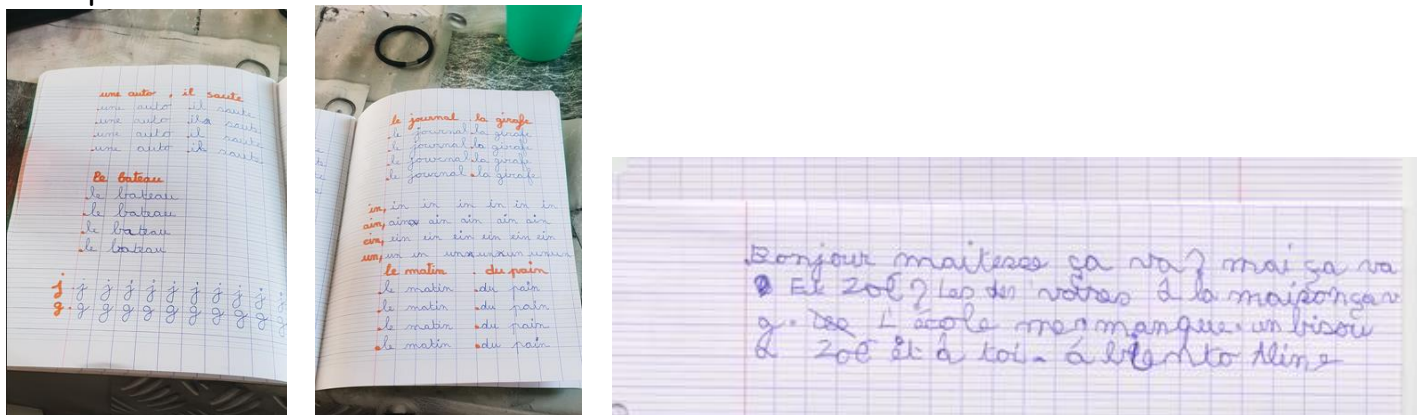 une auto, il saute
une auto il saute
une auto il saute
une auto il saute
une auto il saute
le bateau
le bateau
le bateau
le bateau
le bateau
j. j j j j j j j j j
g. g g g g g g g g g
le journal la girafe
le journal la girafe
le journal la girafe
le journal la girafe
le journal la girafe
in, in in in in in in
ain, ain ain ain ain ain
ein, ein ein ein ein ein ein
un, un un un un un un un
le matin du pain
le matin du pain
le matin du pain
le matin du pain
le matin du pain
Bonjour maiteres ça va? moi ça va
Et Zoé? les des votres à la maison ça v
L école me manque. un bisou
à Zoé et à toi - à bientto Aline